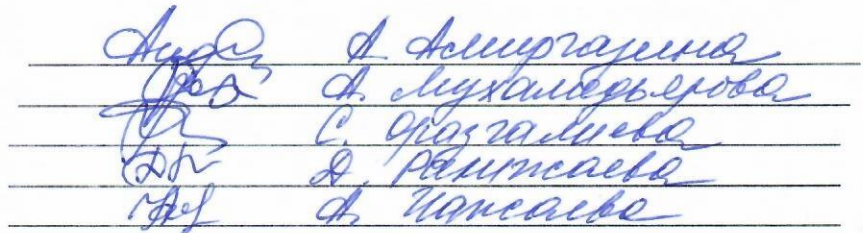 А. Амиргазина
А. Мухамедьярова
С. Оразгалиева
Д. Рамжаева
А. Папжаева